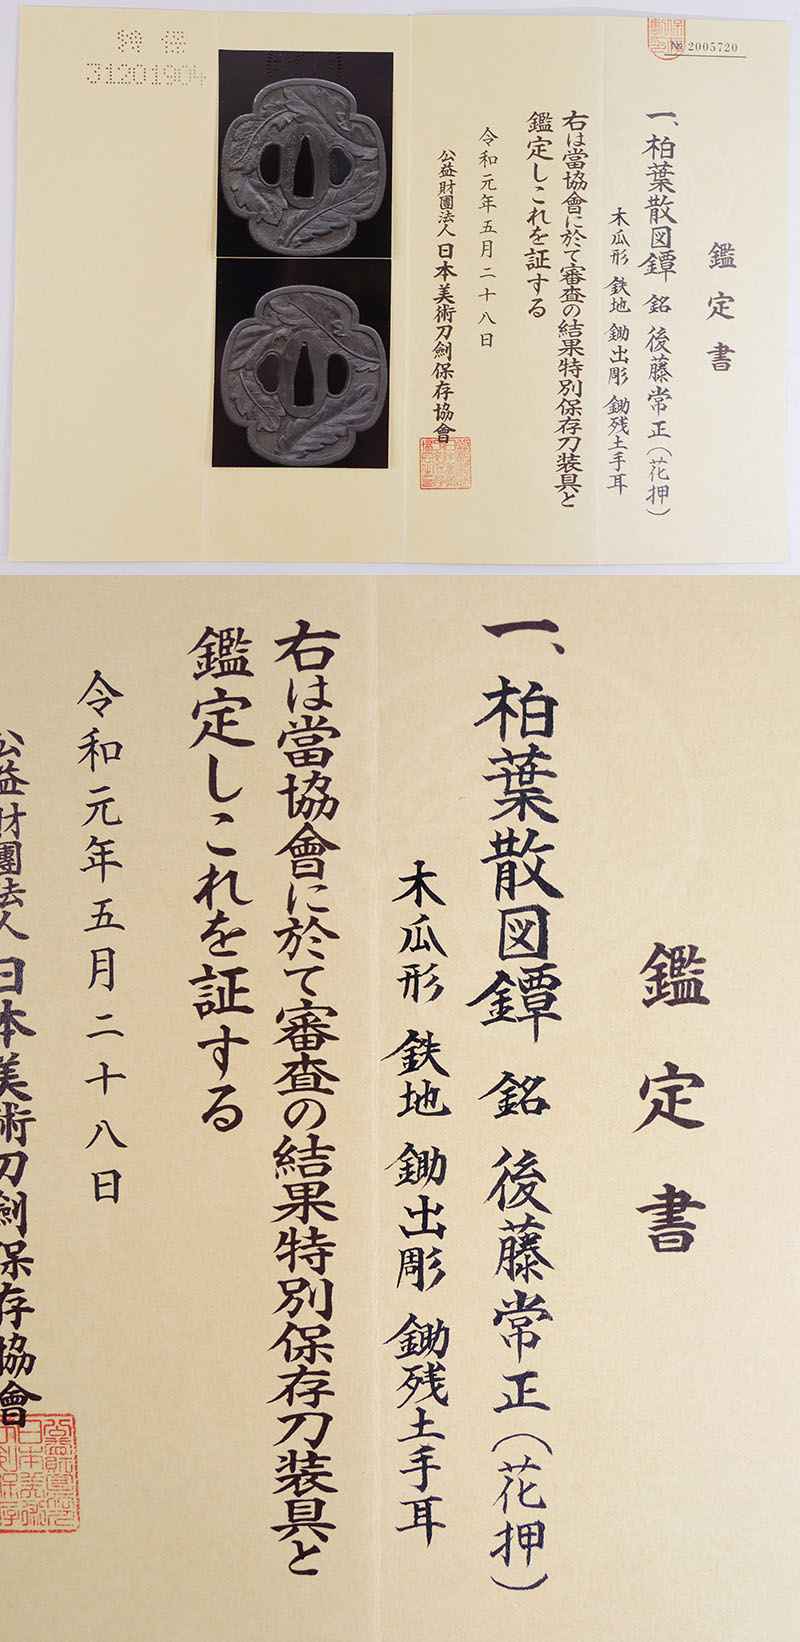 特保
31201904
№ 2005720
鑑定書
一、柏葉散図鐔 銘 後藤常正(花押)
木瓜形 鉄地 鋤出彫 鋤残土手耳
右は當協會に於て審査の結果特別保存刀装具と
鑑定しこれを証する
令和元年五月二十八日
公益財團法人 日本美術刀劍保存協會
鑑定書
一、柏葉散図鐔 銘 後藤常正(花押)
木瓜形 鉄地 鋤出彫 鋤残土手耳
右は當協會に於て審査の結果特別保存刀装具と
鑑定しこれを証する
令和元年五月二十八日
公益財團法人 日本美術刀劍保存協會